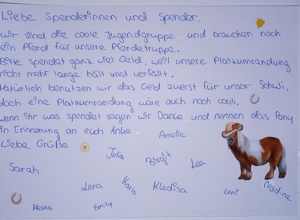 Liebe Spenderinnen und Spender,
wir sind die coole Jugendgruppe und brauchen noch
ein Pferd für unsere Pferdetruppe.
Bitte spendet ganz viel Geld, weil unsere Platzumrandung
nicht mehr lange hält und verfällt.
Natürlich benutzen wir das Geld zuerst für unser
doch eine Platzumrandung wäre auch noch cool.
wenn ihr was spendet sagen wir Danke und nennen das Pony
in Erinnerung an euch Anke.
Liebe Grüße
Amelie
Jola
Birgit
Lea
Sarah
Lena
Kledisa
Lenit
Nadine
Emily